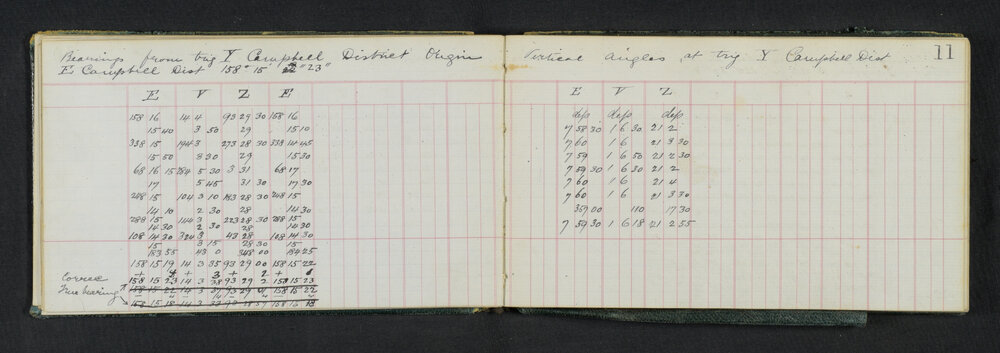 Bearings from trig Y Campbell District Origin
E Campbell Dist 158° 15' 23"
E V Z E
158 16 14 4 93 29 30 158 16
15 40 3 50 29 15 10
338 15 194 3 273 28 30 338 14 45
15 50 3 30 29 15 30
68 16 15 284 5 30 3 31 68 17
17 5 45 31 30 17 30
248 15 104 3 10 183 28 30 248 15
14 10 2 30 28 14 30
288 15 144 3 223 28 30 288 15
14 30 2 30 28 14 30
108 14 30 324 3 43 28 108 14 30
15 3 15 28 30 15
183 55 43 0 348 00 184 25
158 15 19 14 3 35 93 29 00 158 15 22
+ 4 + 3 + 2 + 1
Correc
158 15 23 14 3 38 93 29 2 158 15 23
True bearing
158 15 22 14 3 37 93 29 158 15 22
158 15 18 14 3 33 158 15 18
Vertical angles at trig Y Campbell Dist
11
E V Z
deps deps deps
7 58 30 1 6 30 21 2
7 60 1 6 21 3 30
7 59 1 6 50 21 2 30
7 59 30 1 6 30 21 2
7 60 1 6 21 4
7 60 1 6 21 3 30
359 00 110 17 30
7 59 30 1 6 18 21 2 55